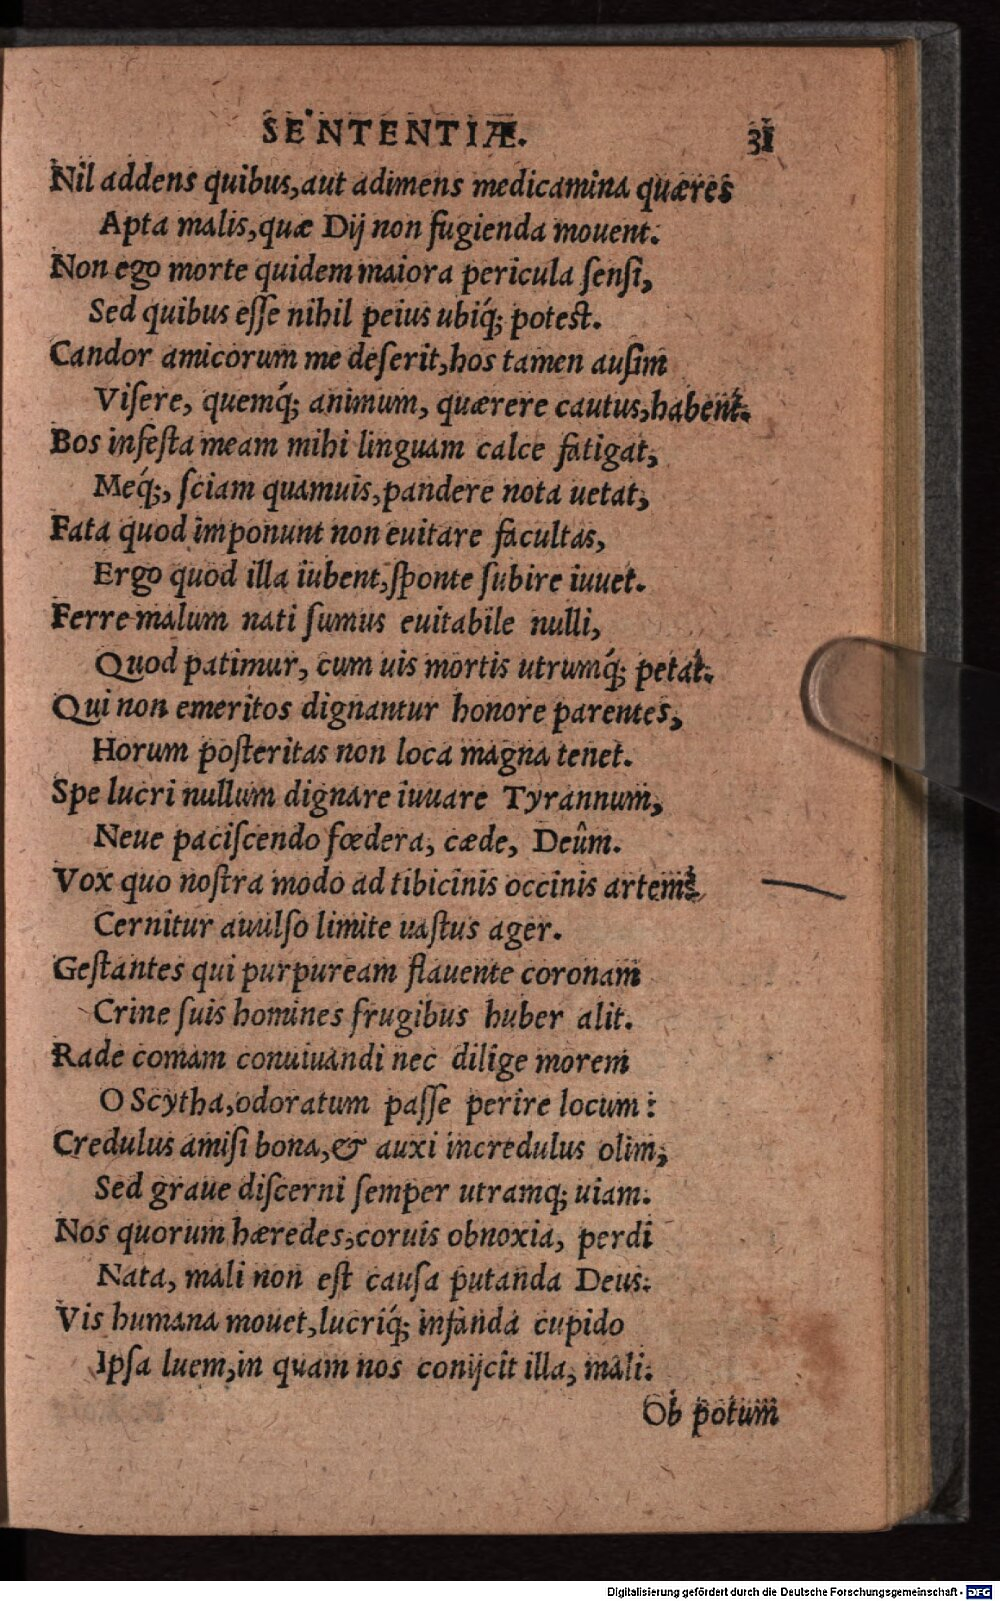 SENTENTIÆ. 31
Nil addens quibus,aut adimens medicamina quæres
Apta malis,quæ Dij non fugienda mouent.
Non ego morte quidem maiora pericula ſenſi,
Sed quibus eſſe nihil peius ubiq́; poteſt.
Candor amicorum me deſerit,hos tamen auſim
Viſere, quemq́; animum, quærere cautus,habent.
Bos infeſta meam mihi linguam calce fatigat,
Meq́;, ſciam quamuis,pandere nota uetat,
Fata quod imponunt non euitare facultas,
Ergo quod illa iubent,ſponte ſubire iuuet.
Ferre malum nati ſumus euitabile nulli,
Quod patimur, cum uis mortis utrumq́; petat.
Qui non emeritos dignantur honore parentes,
Horum poſteritas non loca magna tenet.
Spe lucri nullum dignare iuuare Tyrannum,
Neue paciſcendo fœdera, cæde, Deûm.
Vox quo noſtra modo ad tibicinis occinis artem?
Cernitur auulſo limite uaſtus ager.
Geſtantes qui purpuream flauente coronam
Crine ſuis homines frugibus huber alit.
Rade comam conuiuandi nec dilige morem
O Scytha,odoratum paſſe perire locum :
Credulus amiſi bona,& auxi incredulus olim,
Sed graue diſcerni ſemper utramq; uiam.
Nos quorum hæredes,coruis obnoxia, perdi
Nata, mali non eſt cauſa putanda Deus.
Vis humana mouet,lucriq́; infanda cupido
Ipſa luem,in quam nos conijcit illa, mali.
Ob potum
Digitalisierung gefördert durch die Deutsche Forschungsgemeinschaft - DFG